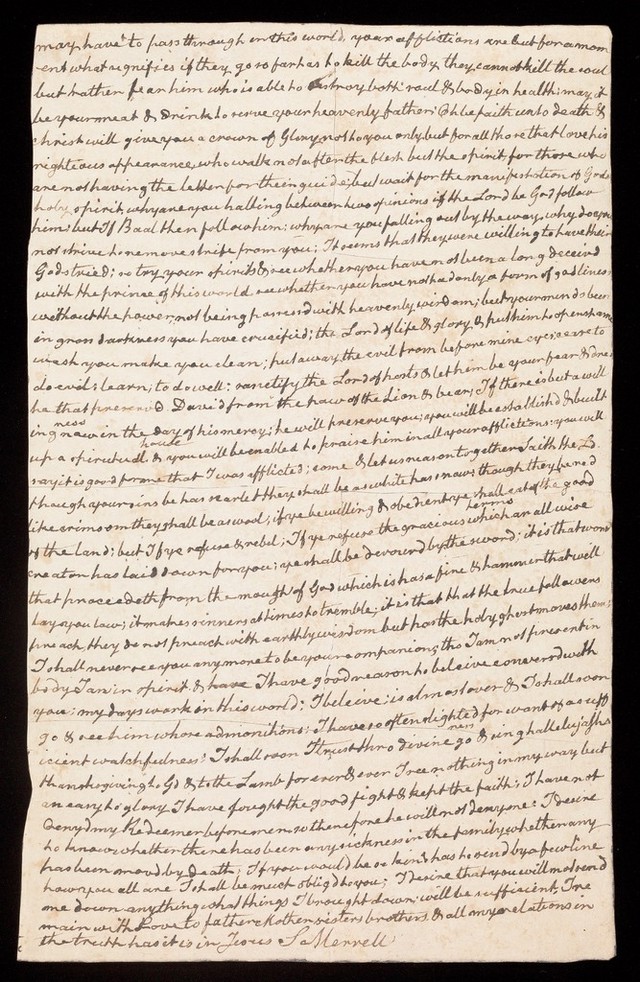 may have to pass through in this world, your afflictions are but for a mom
ent what signifies if they go so far as to kill the body they cannot kill the soul
but rather fear him who is able to destroy both soul & body in health: may it
be your meat & drink to serve your heavenly father: Oh be faith unto death &
christ will give you a crown of Glory not to you only but for all those that love his
righteous appearance, who walk not after the flesh but the spirit, for those who
are not having the letter for their guide; but wait for the manifestation of Gods
holy spirit, why are you halling between two opinions if the Lord be God follow
him: but If Baal then follow him; why are you falling out by the way, why do you
not strive to remove strife from you; It seems that they were willing to have their
Gods tried; so try your spirits & see whether you have not been a long deceivd
with the prince of this world see whether you have not had only a form of godliness
without the power, not being possessd with heavenly wisdom; but your minds been
in gross darkness you have crucified; the Lord of life & glory & put him to open shame
wash you make you clean; put away the evil from before mine eyes; cease to
do evil: learn; to do well: sanctify the Lord of hosts & let him be your fear & dread
he that preserved David from the paw of the Lion & bear; If there is but a will
ingness now in the day of his mercy; he will preserve you; you will be establishd & built
up a spiritual house & you will be enabled to praise him in all your afflictions: you will
say it is good for me that I was afflicted; come & let us reason together Saith the Ld
though your sins be has scarlet they shall be as white has snow: though they be red
like crimson they shall be as wool; if ye be willing & obedient ye shall eat of the good
of the land; but If ye refuse & rebel; If ye refuse the gracious terms which an all wise
creator has laid down for you; ye shall be devourd by the sword; it is that word
that proceedeth from the mough of God which is has a fire & hammer that will
lay you law; it makes sinners at times to tremble; it is that that the true followers
preach, they do not preach with earthly wisdom but has the holy ghost moves them;
I shall never see you any more to be your companion; tho I am not present in
body I am in spirit & have I have good reason to beleive conversd with
you; my days work in this world; I beleive; is almost over & I shall soon
go & see him whose admonitions: I have so often slighted for want of a suff
icient watchfulness: I shall soon I trust thro divine go & sing hallelujahs
thanksgiving to Gd & to the Lamb for ever & ever I see nothing in my way but
an easy to glory I have fought the good fight & kept the faith; I have not
denyd my Redeemer before men, so therefore he will not deny me: I desire
to know whether there has been any sickness in the family, whether any
has been movd by death; If you would be so kind has to send by a few line
how you all are I shall be much obligd to you; I desire that you will not send
me down any thing what things I brought down will be sufficient; I re
main with Love to father Mother sisters brothers & all my relations in
the truth has it is in Jesus S Merrell